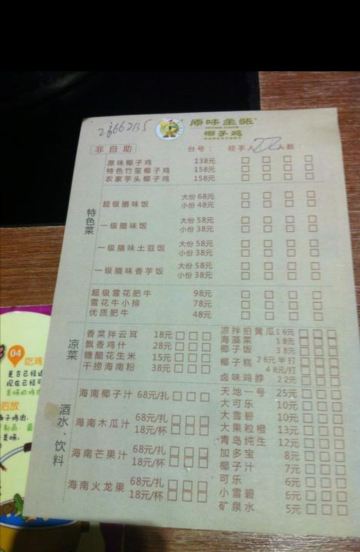 原味主张
椰子鸡
非自助
台号
经手人
人数
原味椰子鸡 138元
特色竹荪椰子鸡 158元
农家芋头椰子鸡 158元
特色菜
超级腊味饭 大份 68元
小份 48元
一级腊味饭 大份 58元
小份 38元
一级腊味土豆饭 大份 58元
小份 38元
一级腊味香芋饭 大份 58元
小份 38元
超级雪花肥牛 98元
雪花牛小排 78元
优质肥牛 48元
凉菜
香菜拌云耳 18元
飘香鸡什 28元
糖醋花生米 15元
干捞海南粉 38元
凉拌拍黄瓜 16元
海藻菜 18元
椰子饭 38元
椰子糕
卤味鸡脖 22元
酒水、饮料
海南椰子汁 68元/扎
海南木瓜汁 68元/扎
18元/杯
海南芒果汁 68元/扎
18元/杯
海南火龙果 68元/扎
18元/杯
天地一号 25元
大可乐 10元
大雪碧 10元
大果粒橙 13元
青岛纯生 12元
加多宝 8元
椰子汁 7元
可乐 6元
小雪碧 6元
矿泉水 5元
04
吃鸡